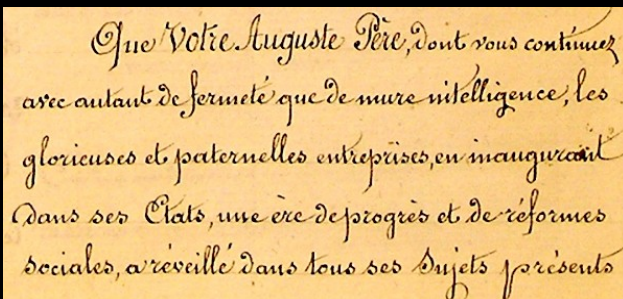 Que Votre Auguste Père, dont vous continuez
avec autant de fermeté que de mure intelligence, les
glorieuses et paternelles entreprises, en inaugurant
dans ses Etats, une ère de progrès et de réformes
sociales, a réveillé dans tous ses Sujets présents